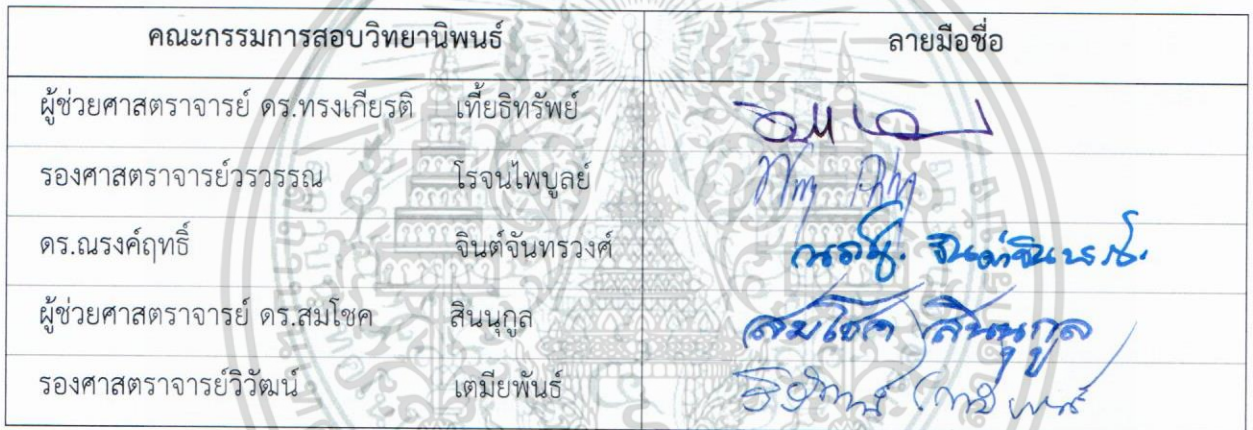 คณะกรรมการสอบวิทยานิพนธ์ ลายมือชื่อ
ผู้ช่วยศาสตราจารย์ ดร.ทรงเกียรติ เที้ยธิทรัพย์
รองศาสตราจารย์วรวรรณ โรจนไพบูลย์
ดร.ณรงค์ฤทธิ์ จินต์จันทรวงศ์
ผู้ช่วยศาสตราจารย์ ดร.สมโชค สินนุกูล สมโชค สินนุกูล
รองศาสตราจารย์วิวัฒน์ เตมียพันธ์